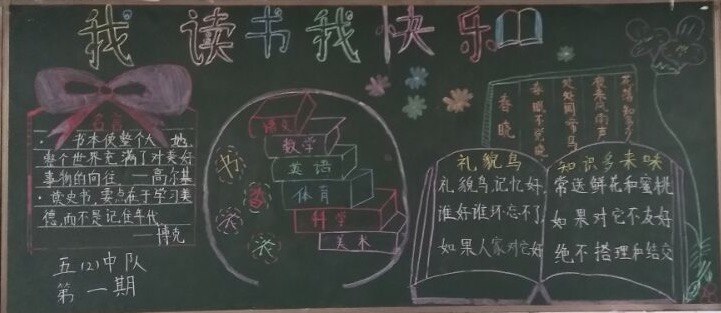 我读书我快乐
名言
·书本使整个大地,
整个世界充满了对美好
事物的向往 ——高尔基
·读史书,要点在于学习美
德,而不是记住年代
——博克
五(2)中队
第一期
书
香
语文
数学
英语
体育
科学
美术
春晓
春眠不觉晓
处处闻啼鸟
夜来风雨声
花落知多少
礼貌鸟
礼貌鸟,记忆好,
谁好谁坏忘不了,
如果人家对它好
知识多来咪
常送鲜花和蜜桃
如果对它不友好
绝不搭理和结交